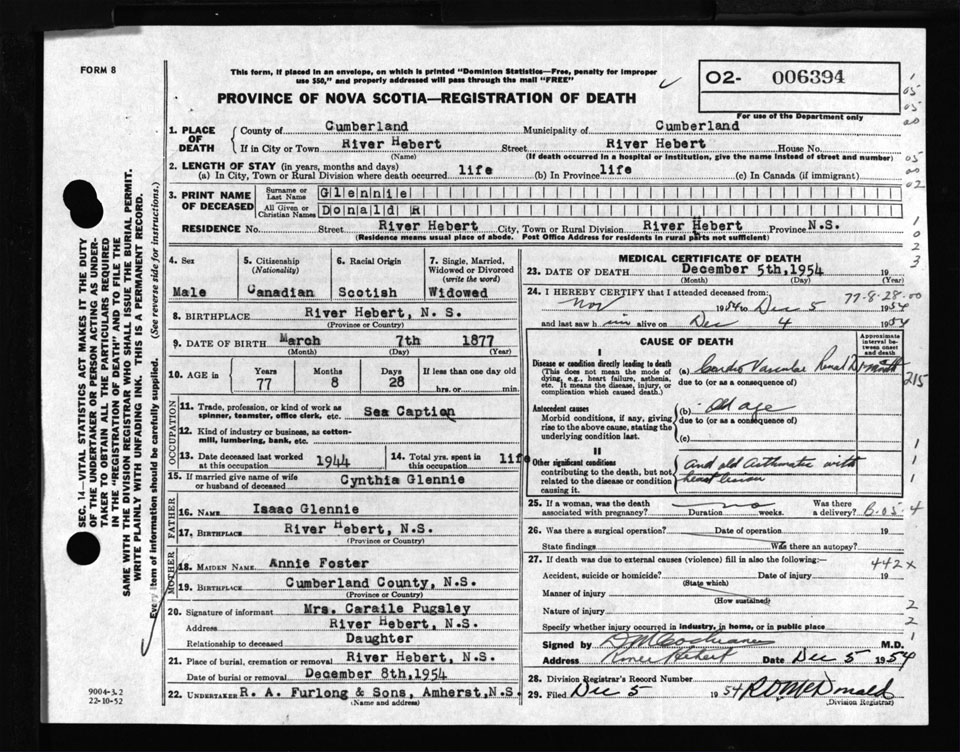 FORM 8
This form, if placed in an envelope, on which is printed "Dominion Statistics—Free, penalty for improper
use $50," and properly addressed will pass through the mail "FREE"
PROVINCE OF NOVA SCOTIA—REGISTRATION OF DEATH
O2- 006394
For use of the Department only
1. PLACE OF DEATH County of Cumberland Municipality of Cumberland
If in City or Town River Hebert Street River Hebert House No.
(Name) (If death occurred in a hospital or institution, give the name instead of street and number)
2. LENGTH OF STAY (in years, months and days)
(a) In City, Town or Rural Division where death occurred life (b) In Province life (c) In Canada (if immigrant)
3. PRINT NAME OF DECEASED Surname or Last Name Glennie
All Given or Christian Names Donald R
RESIDENCE No. Street River Hebert City, Town or Rural Division River Hebert Province N.S.
(Residence means usual place of abode. Post Office Address for residents in rural parts not sufficient)
4. Sex Male
5. Citizenship (Nationality) Canadian
6. Racial Origin Scotish
7. Single, Married, Widowed or Divorced (write the word) Widowed
8. BIRTHPLACE River Hebert, N. S.
(Province or Country)
9. DATE OF BIRTH March 7th 1877
(Month) (Day) (Year)
10. AGE in Years 77 Months 8 Days 28 If less than one day old hrs. or min.
OCCUPATION
11. Trade, profession, or kind of work as spinner, teamster, office clerk, etc. Sea Caption
12. Kind of industry or business, as cotton-mill, lumbering, bank, etc.
13. Date deceased last worked at this occupation 1944
14. Total yrs. spent in this occupation life
15. If married give name of wife or husband of deceased Cynthia Glennie
FATHER
16. NAME Isaac Glennie
17. BIRTHPLACE River Hebert, N.S.
(Province or Country)
MOTHER
18. MAIDEN NAME Annie Foster
19. BIRTHPLACE Cumberland County, N.S.
(Province or Country)
20. Signature of informant Mrs. Caraile Pugsley
Address River Hebert, N.S.
Relationship to deceased Daughter
21. Place of burial, cremation or removal River Hebert, N.S.
Date of burial or removal December 8th, 1954
22. UNDERTAKER R. A. Furlong & Sons, Amherst, N.S.
(Name and address)
MEDICAL CERTIFICATE OF DEATH
23. DATE OF DEATH December 5th, 1954 19
(Month) (Day) (Year)
24. I HEREBY CERTIFY that I attended deceased from: 77-8-28-00
Nov 1954 to Dec 5 1954
and last saw him alive on Dec 4 1954
CAUSE OF DEATH
Approximate interval between onset and death
I
Disease or condition directly leading to death
(This does not mean the mode of dying, e.g., heart failure, asthenia, etc. It means the disease, injury, or complication which caused death.)
(a) Cardio Vascular Renal D 1 month
due to (or as a consequence of)
215
Antecedent causes
Morbid conditions, if any, giving rise to the above cause, stating the underlying condition last.
(b) Old age
due to (or as a consequence of)
(c)
II
Other significant conditions
contributing to the death, but not related to the disease or condition causing it.
and old Asthmatic with
heart lesion
25. If a woman, was the death associated with pregnancy? no Duration weeks. Was there a delivery? B-05-4
26. Was there a surgical operation? Date of operation 19
State findings Was there an autopsy?
27. If death was due to external causes (violence) fill in also the following: 442x
Accident, suicide or homicide? Date of injury 19
(State which)
Manner of injury
(How sustained)
Nature of injury
Specify whether injury occurred in industry, in home, or in public place
Signed by D M Cochrane M.D.
Address River Hebert Date Dec 5 1954
28. Division Registrar's Record Number
29. Filed Dec 5 1954 R D McDonald
(Division Registrar)
SEC. 14—VITAL STATISTICS ACT MAKES IT THE DUTY
OF THE UNDERTAKER OR PERSON ACTING AS UNDER-
TAKER TO OBTAIN ALL THE PARTICULARS REQUIRED
IN THE "REGISTRATION OF DEATH" AND TO FILE THE
SAME WITH THE DIVISION REGISTRAR WHO SHALL ISSUE THE BURIAL PERMIT.
WRITE PLAINLY WITH UNFADING INK. THIS IS A PERMANENT RECORD.
Every item of information should be carefully supplied. (See reverse side for instructions.)
9004-3.2
22-10-52